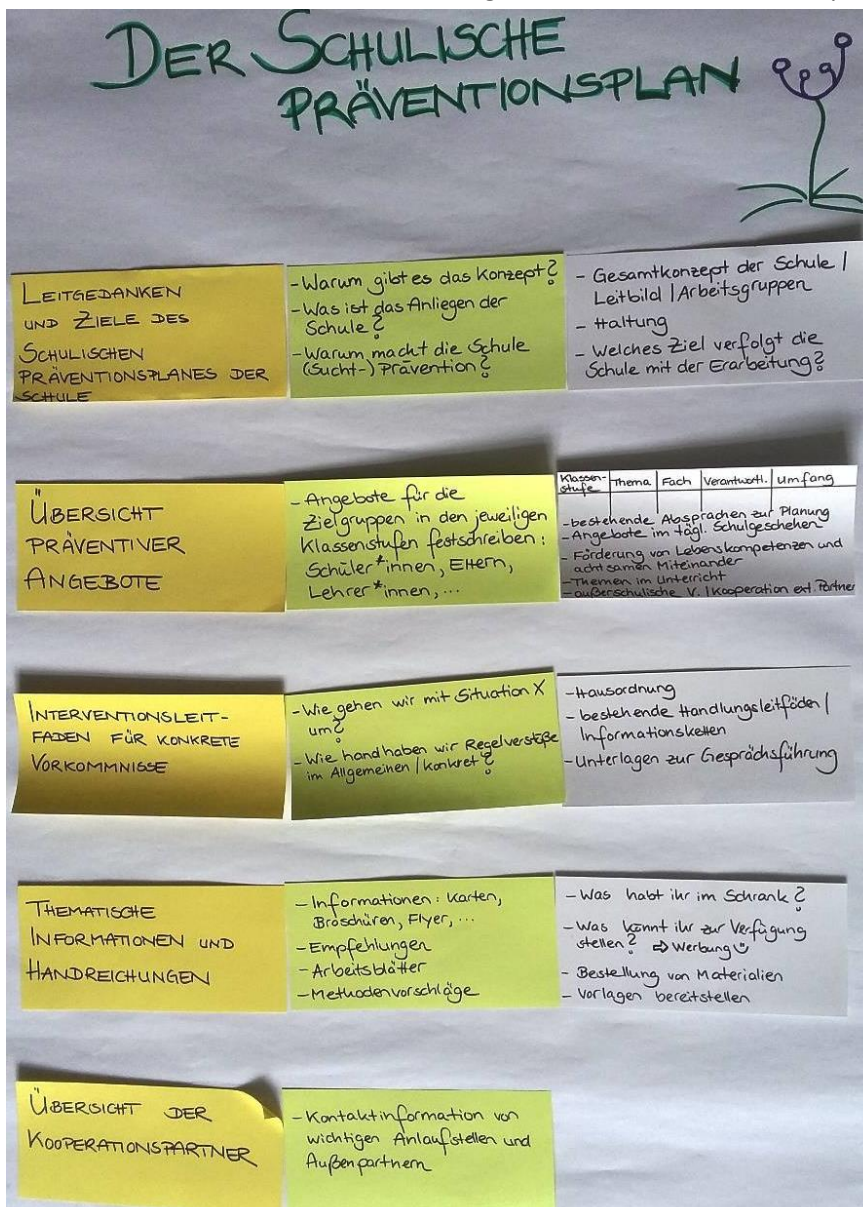 DER SCHULISCHE
PRÄVENTIONSPLAN
LEITGEDANKEN
UND ZIELE DES
SCHULISCHEN
PRÄVENTIONSPLANES DER
SCHULE
-Warum gibt es das Konzept?
-Was ist das Anliegen der
Schule?
-Warum macht die Schule
(Sucht-) Prävention?
- Gesamtkonzept der Schule /
Leitbild / Arbeitsgruppen
- Haltung
- Welches Ziel verfolgt die
Schule mit der Erarbeitung?
ÜBERSICHT
PRÄVENTIVER
ANGEBOTE
-Angebote für die
Zielgruppen in den jeweiligen
Klassenstufen festschreiben:
Schüler*innen, Eltern,
Lehrer*innen, ...
Klassen-
stufe Thema Fach Verantwortl. Umfang
-bestehende Absprachen zur Planung
-Angebote im tägl. Schulgeschehen
- Förderung von Lebenskompetenzen und
achtsamen Miteinander
-Themen im Unterricht
-außerschulische V. / Kooperation ext. Partner
INTERVENTIONSLEIT-
FADEN FÜR KONKRETE
VORKOMMNISSE
-Wie gehen wir mit Situation X
um?
-Wie handhaben wir Regelverstöße
im Allgemeinen / konkret?
-Hausordnung
- bestehende Handlungsleitfäden /
Informationsketten
-Unterlagen zur Gesprächsführung
THEMATISCHE
INFORMATIONEN UND
HANDREICHUNGEN
-Informationen: Karten,
Broschüren, Flyer, ...
-Empfehlungen
-Arbeitsblätter
-Methodenvorschläge
- Was habt ihr im Schrank?
-Was könnt ihr zur Verfügung
stellen? ⇨ Werbung ☺
- Bestellung von Materialien
- Vorlagen bereitstellen
ÜBERSICHT DER
KOOPERATIONSPARTNER
-Kontaktinformation von
wichtigen Anlaufstellen und
Außenpartnern